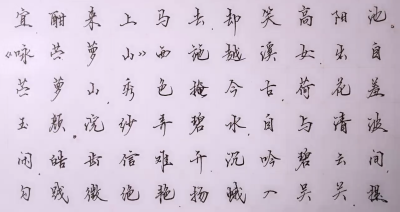 宜酣来上马去,却笑高阳池。
《咏苎萝山》西施越溪女,出自
苎萝山,秀色掩今古,荷花羞
玉颜。浣纱弄碧水,自与清波
闲。皓齿信难开,沉吟碧云间,
勾践徵绝艳,扬蛾入吴关,提